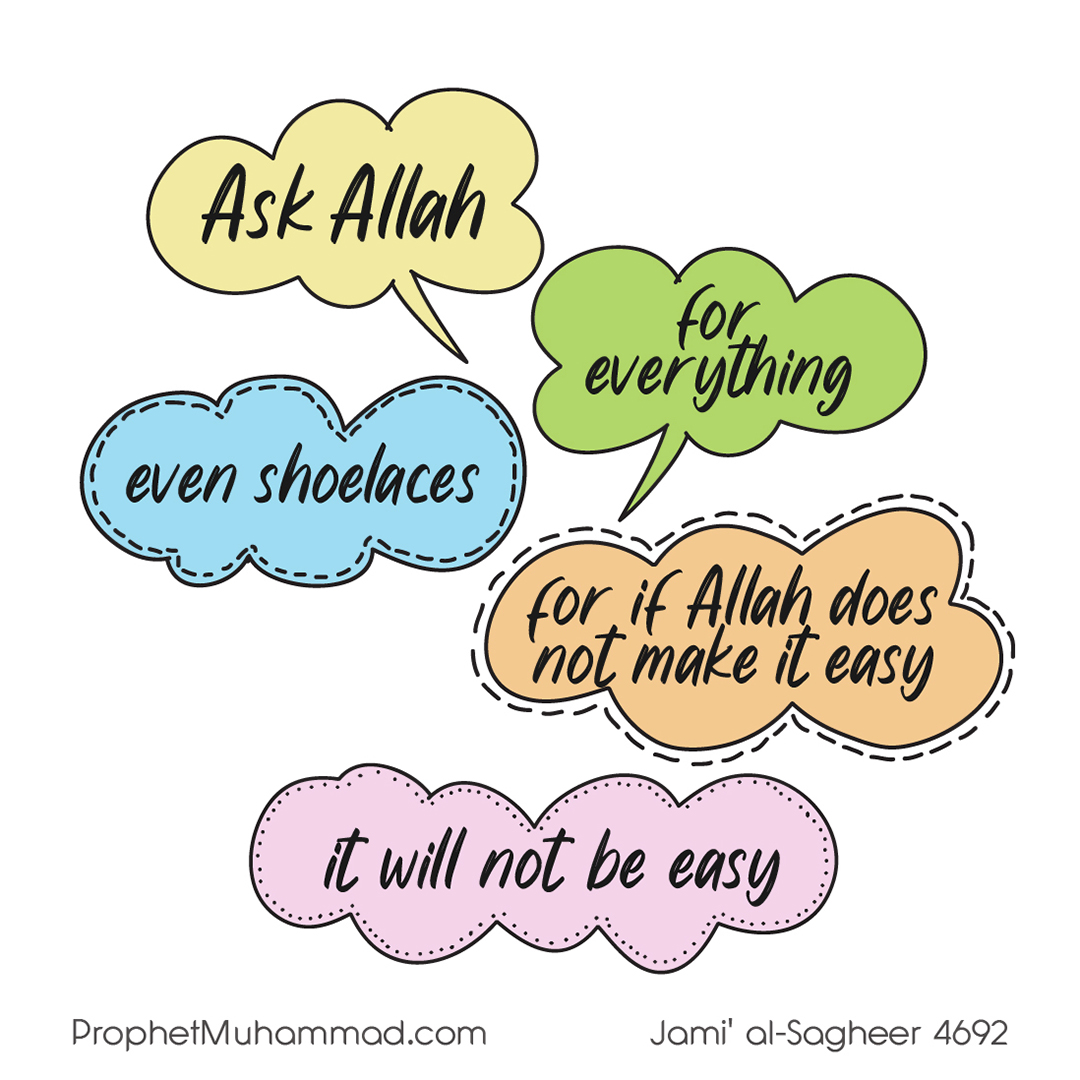 Ask Allah
for
everything
even shoelaces
for if Allah does
not make it easy
it will not be easy
ProphetMuhammad.com
Jami' al-Sagheer 4692